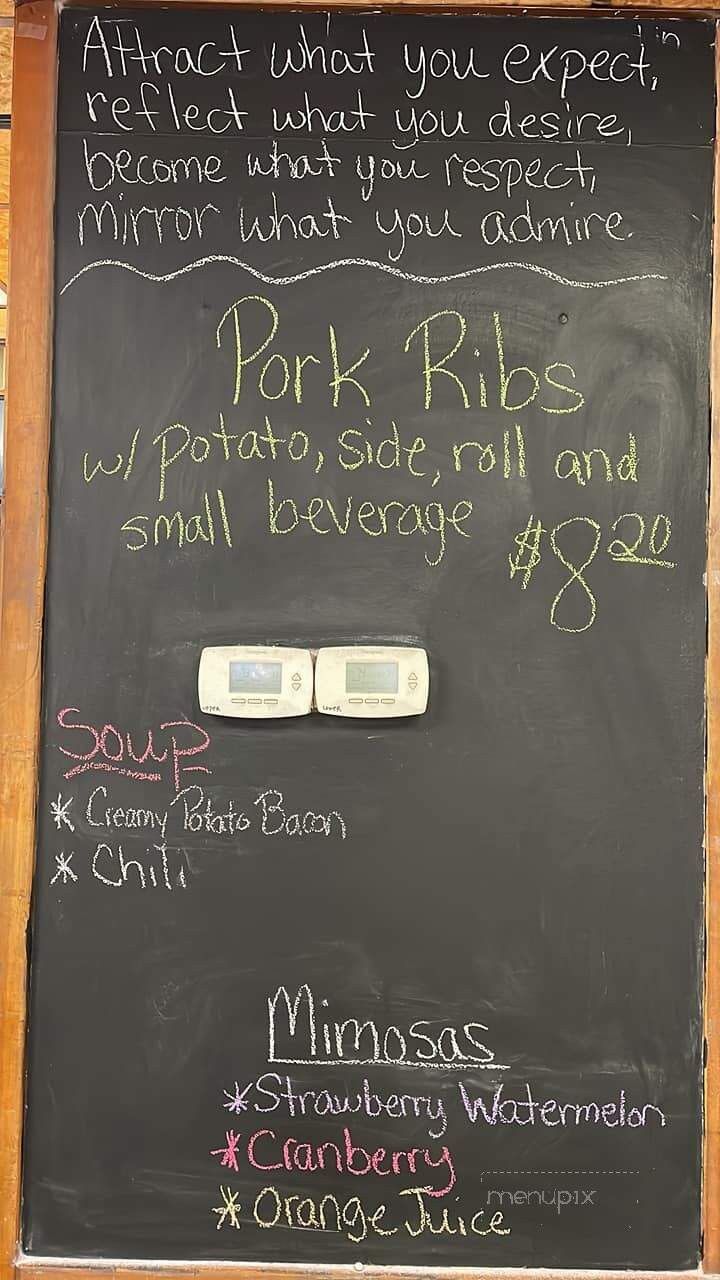 Attract what you expect,
reflect what you desire,
become what you respect,
mirror what you admire.
Pork Ribs
w/ potato, side, roll and
small beverage $8 20
UPPER LOWER
Soup
* Creamy Potato Bacon
* Chili
Mimosas
*Strawberry Watermelon
*Cranberry
*Orange Juice
menupix